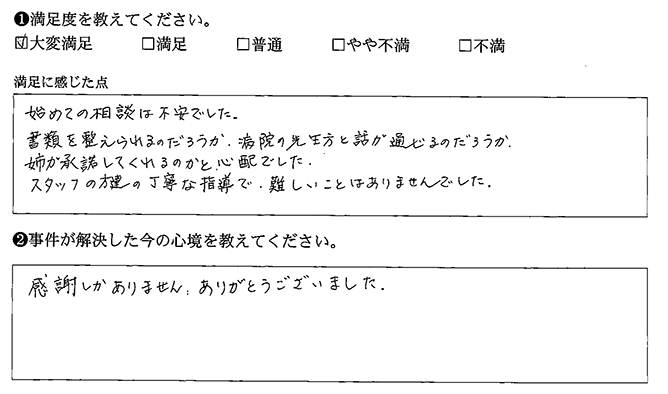 ❶満足度を教えてください。
☑大変満足 □満足 □普通 □やや不満 □不満
満足に感じた点
始めての相談は不安でした。
書類を整えられるのだろうか、病院の先生方と話が通じるのだろうか、
姉が承諾してくれるのかと心配でした。
スタッフの様の丁寧な指導で、難しいことはありませんでした。
❷事件が解決した今の心境を教えてください。
感謝しかありません。ありがとうございました。